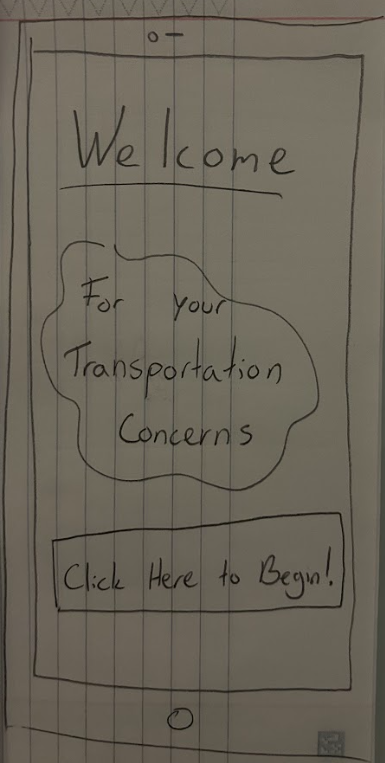 Welcome
For your
Transportation
Concerns
Click Here to Begin!